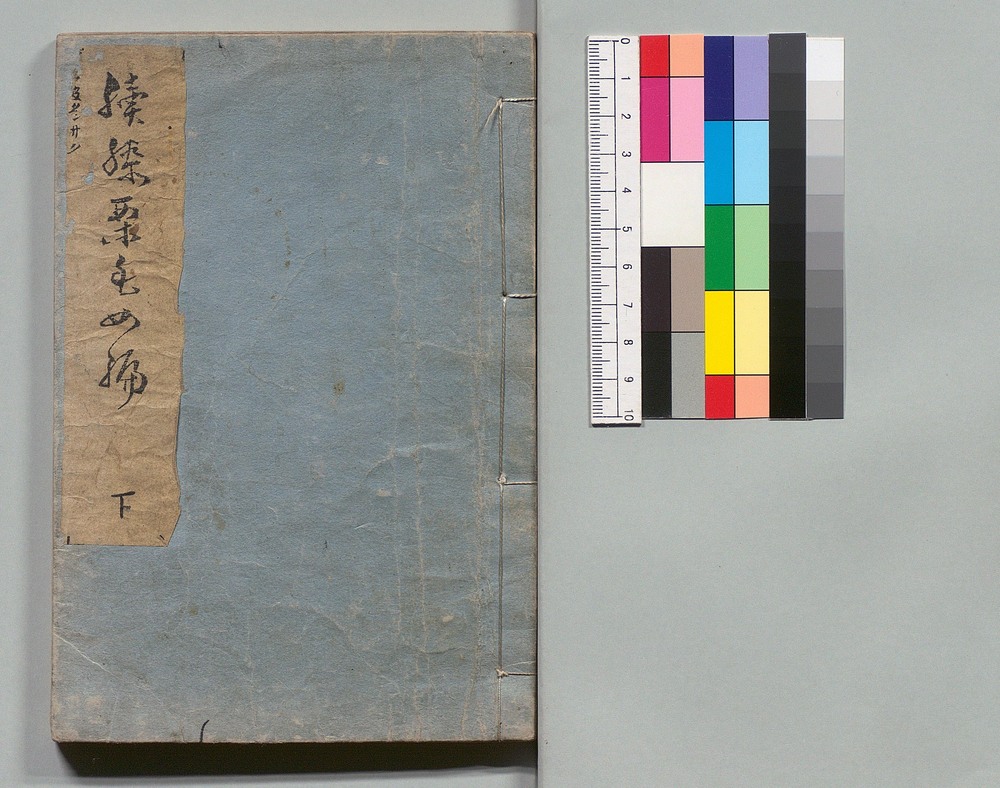 續膝栗毛四編 下
0 1 2 3 4 5 6 7 8 9 10